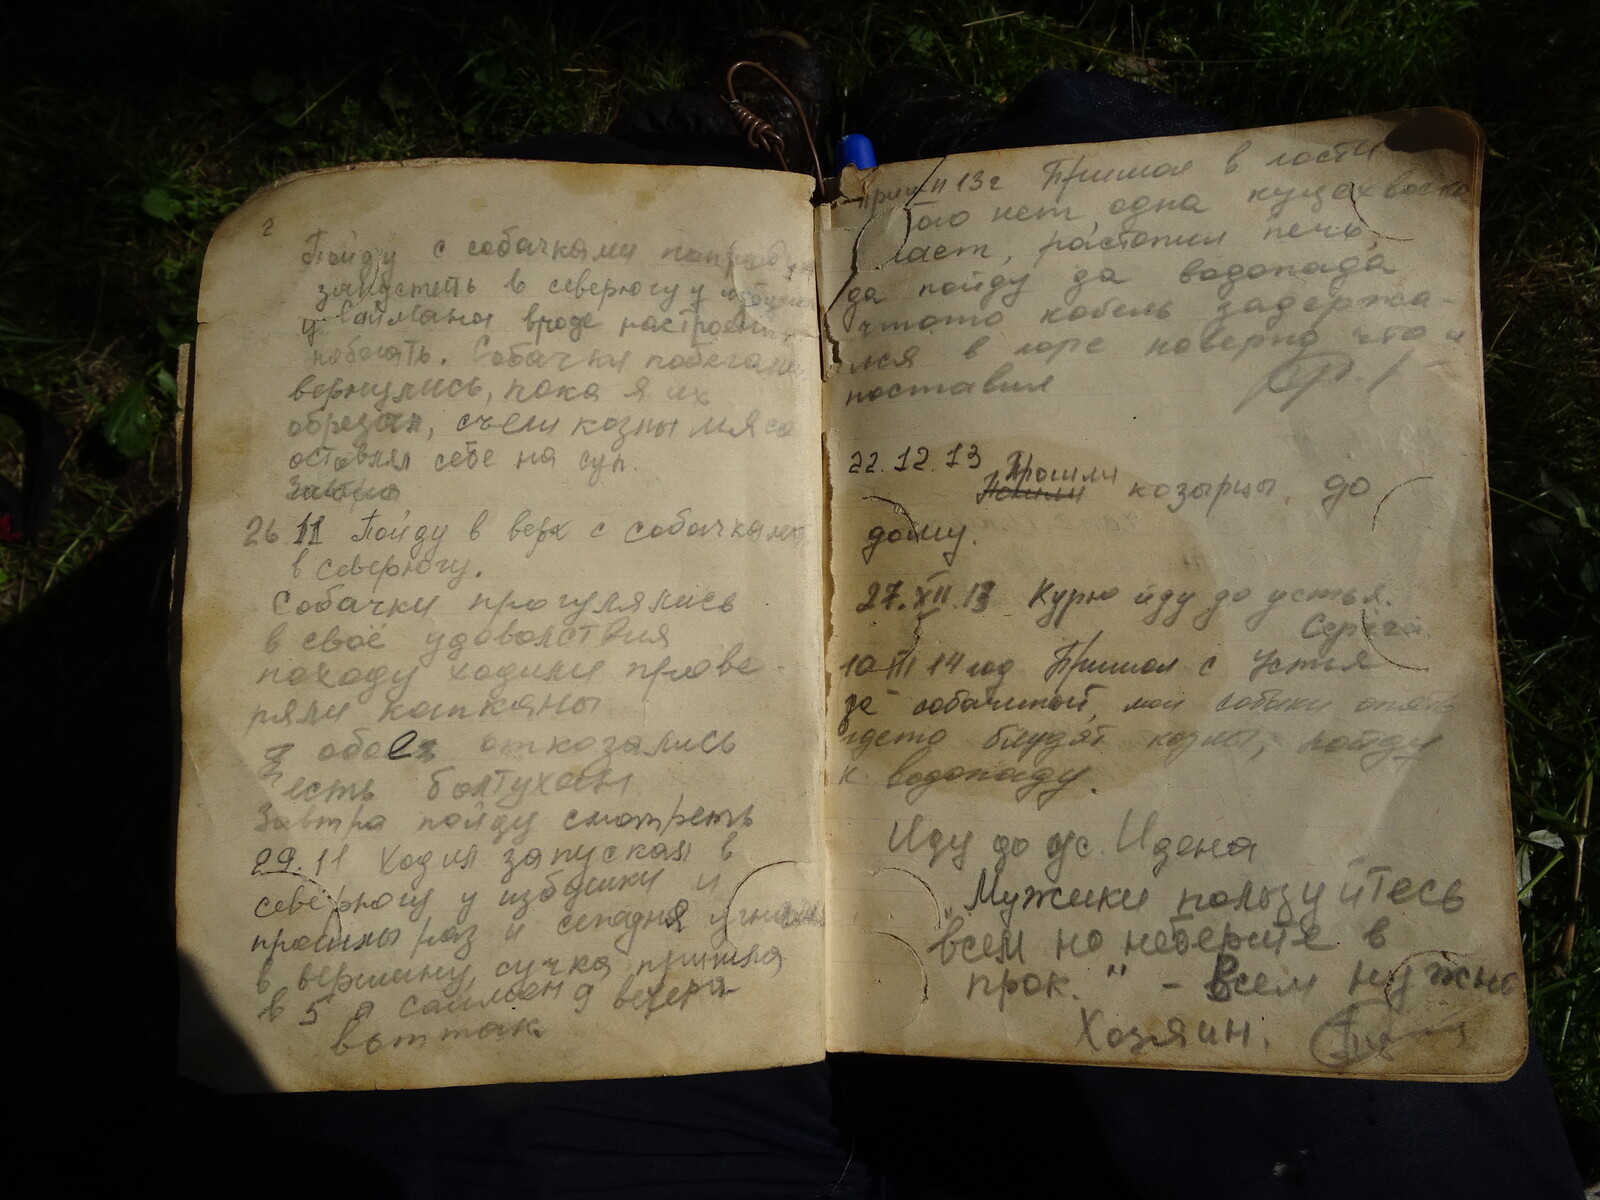 2
Пойду с собачками
запустеть в северюгу у
у Саймана вроде настроен
побегать. Собачки побегали
вернулись, пока я их
обрезал, съели козны мясо
оставлял себе на суп.
Завтра
26.11 Пойду в верх с собачками
в северюгу.
Собачки прогулялись
в своё удоволствия
походу ходили прове-
ряли капканы
обоеx отказались
есть болтухоы
Завтра пойду смотреть
29.11 Ходил запускал в
северюгу у избушки и
прошлы раз и сегодня
в вершину, сучка пришла
в 5 а саймон 9 вечера
вот так
13г Пришол в гости
нет одна
растопил печь,
да пойду да водопада
чтото кобель задержа-
лся в горе наверно что и
поставил
22.12.13 Прошли
Пошли козырцы, до
дому.
27.XII.13 Курю йду до устья.
Серёга
10 III 14 год Пришол с Устья
за собачиной, мои собаки опять
гдето блудят козлы, пойду
к водопаду.
Иду до ус. Идена
"Мужики пользуйтесь
всем но неберите в
прок." - Всем нужно
Хозяин.